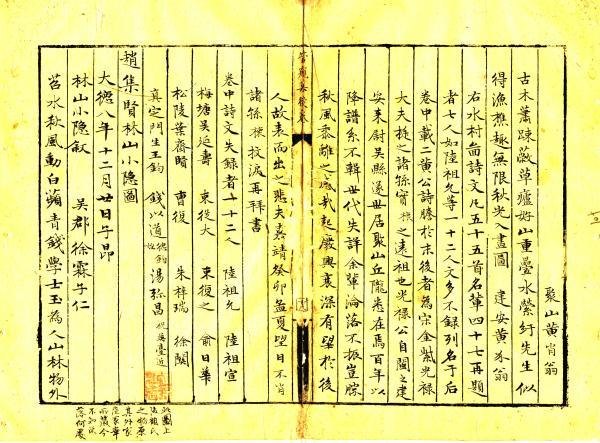 聚山黄肖翁
古木蕭踈蔽草廬好山重疊水縈紆先生似
得漁樵趣無限秋光入畫圖 建安黄翁
右水村啚詩文凡五十五首名軰四十七再題
者七人如陸祖允等一十二人文多不録列名于后
卷中載二黄公詩勝於末後者為宗金紫光禄
大夫挺之諸孫實穟之遠祖也光禄公自閩之建
安来尉吴縣遂世居聚山丘隴悉在焉百年以
降譜系不輯世代失詳余軰淪落不振豈勝
秋風黍離之感哉起廢興衰深有望於後
人故表而出之悲夫嘉靖癸卯孟夏望日不肖
諸孫穟抆淚再拜書
卷中詩文失録者一十二人 陸祖允 陸祖宣
梅塘吴延壽 束從大 束復之 俞日華
松陵葉齋賢 曹復 朱梓瑞 徐關
真定門生王鈞 錢以道 湯弥昌
趙集賢林山小隱圖
大德八年十二月廿日子昂
林山小隱叙 吴郡徐霖子仁
苕水秋風動白蘋青錢學士玉為人山林物外